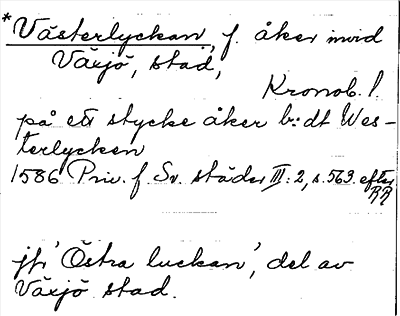 *Västerlyckan, f. åker invid
Växjö, stad,
Kronob. l.
på ett stycke åker b:dt Wes-
terlycken
1586 Priv. f. Sv. städer III:2, s. 563. efter
RR
jfr 'Östra luckan', del av
Växjö stad.